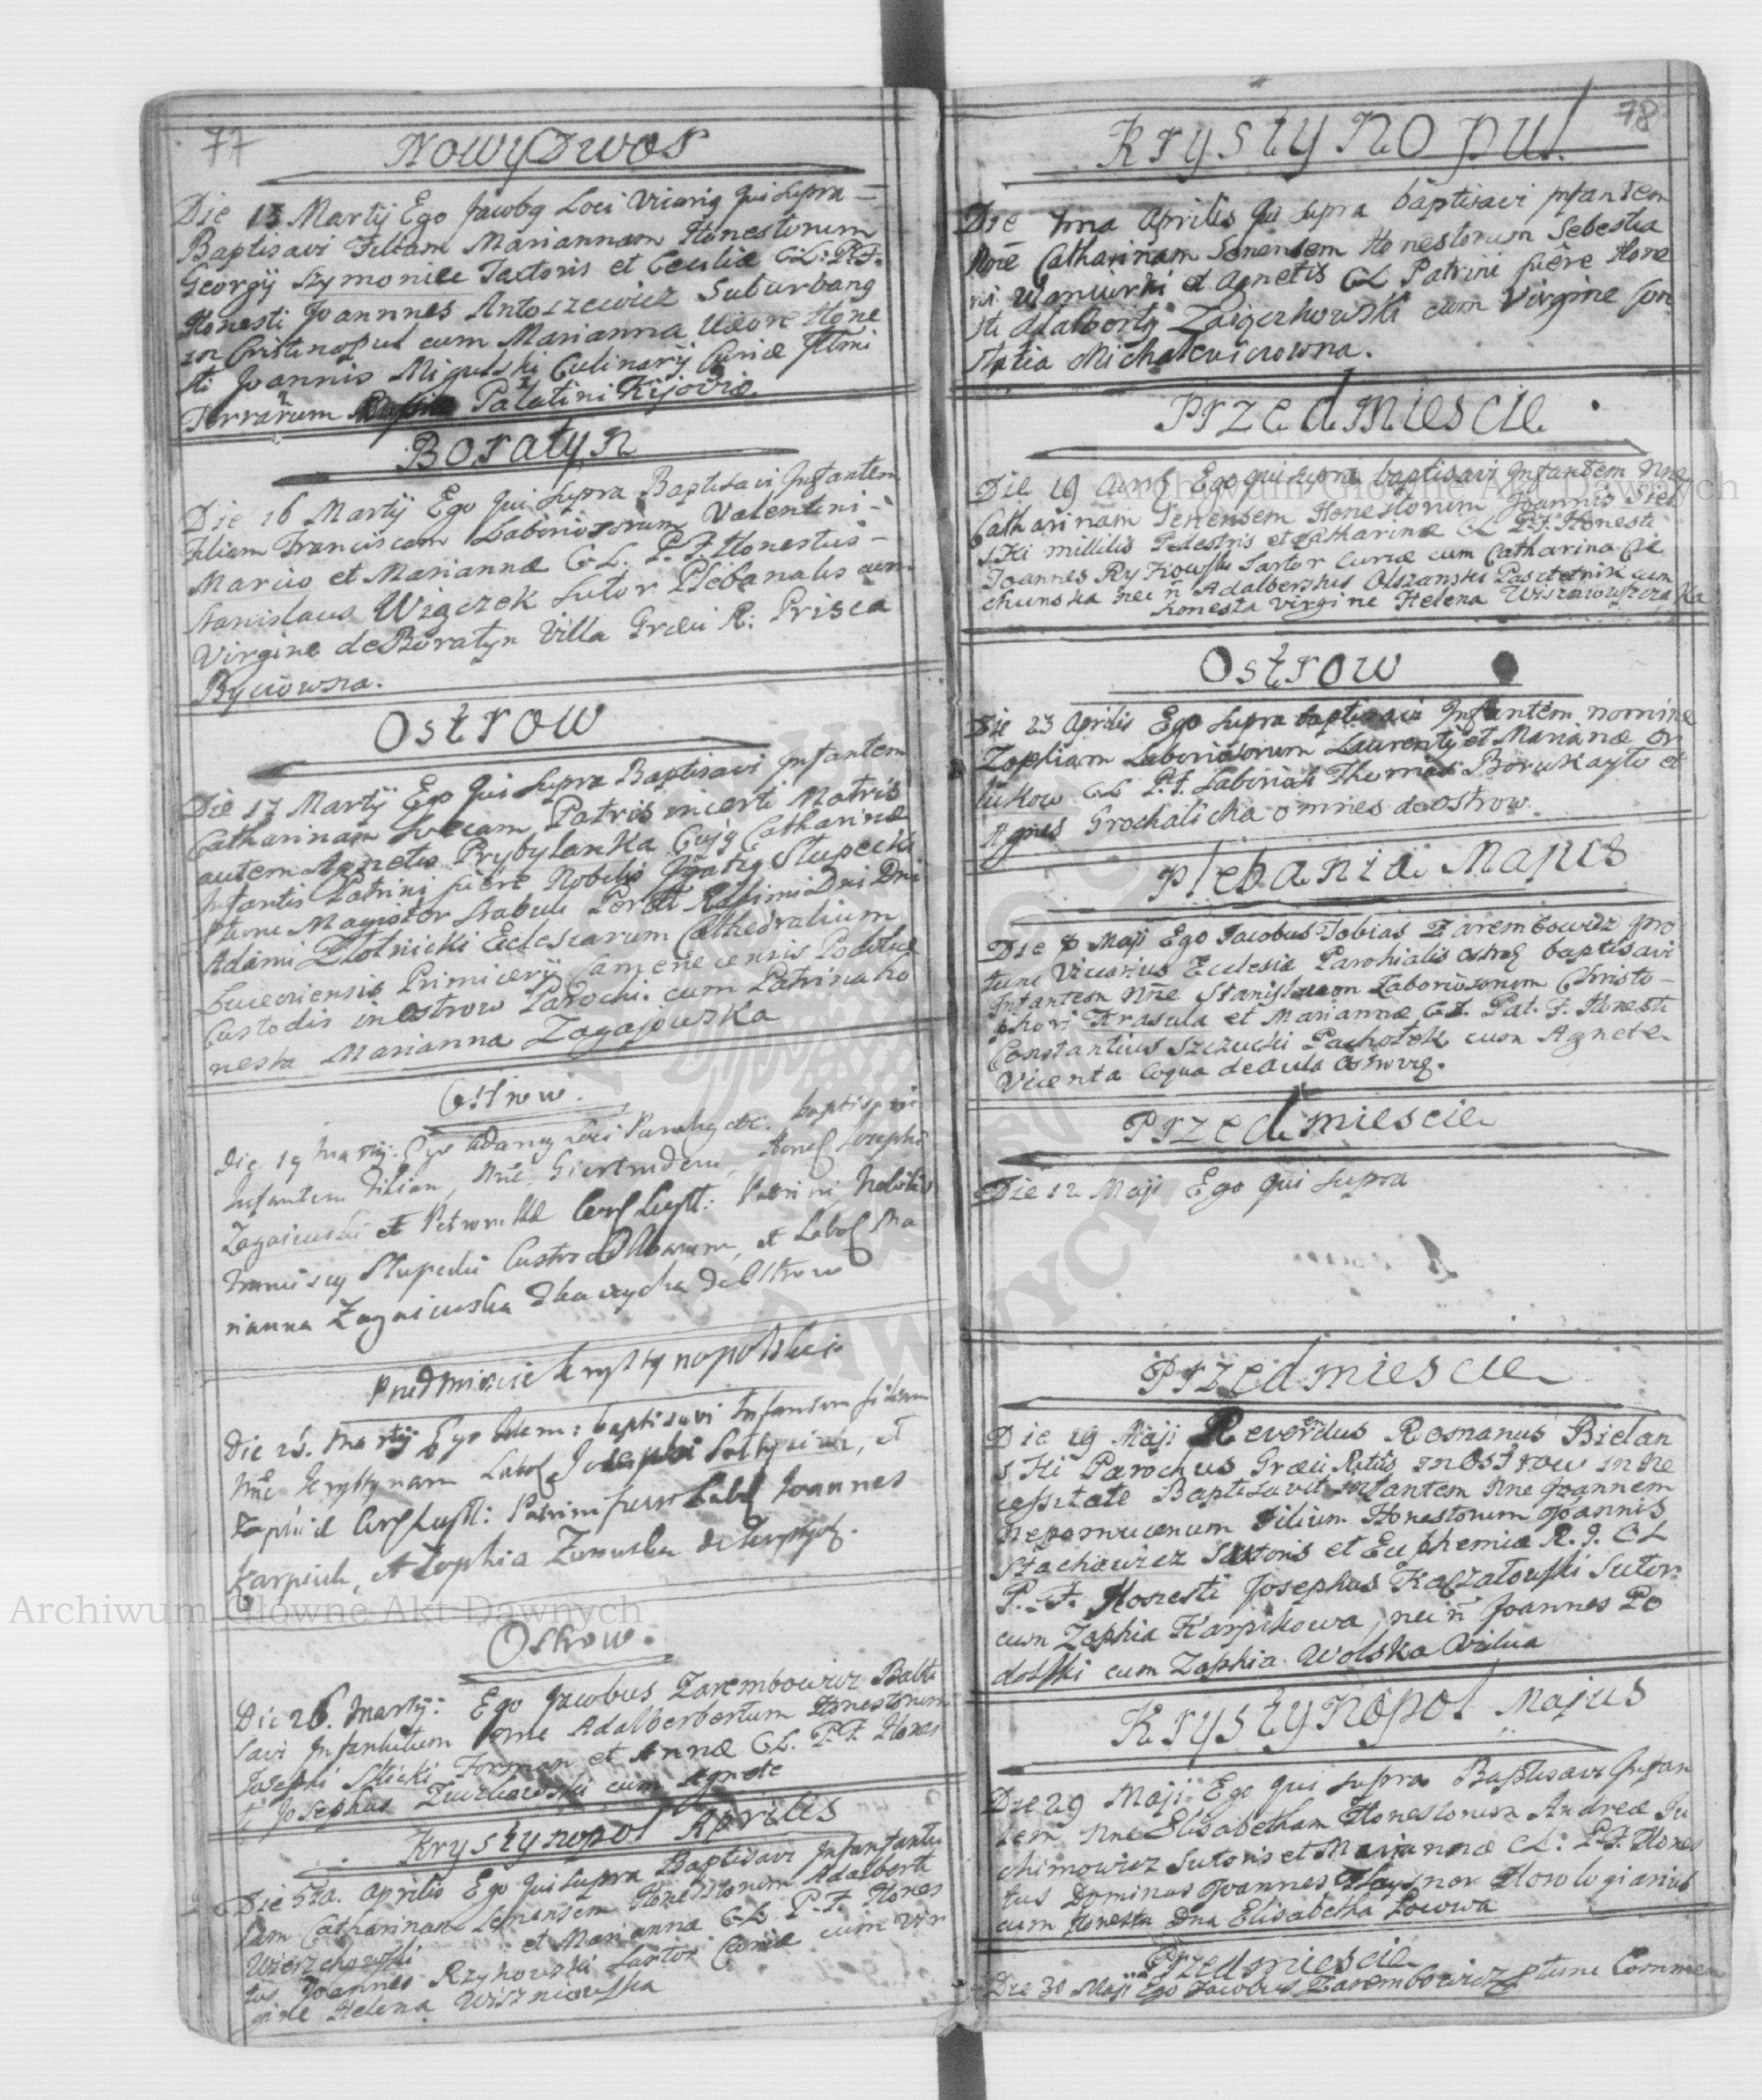 77
Nowy Dwor
Die 13 Martij Ego Jacobq Loci Vicariq qui supra
Baptisavi Filiam Mariannam Honestorum
Georgij Szymonicz Textoris et Ceciliæ CL: P.F.
Honesti Joannnes Antoszewicz Suburbanq
in Cristinopul cum Marianna Uxore Hone
sti Joannis Migulski Culinarij Curiæ Illmi
Terrarum Palatini Kijoviæ.
Boratyn
Die 16 Martij Ego Qui Supra Baptisavi Infantem
Filiam Franciscam Laboriosorum Valentini
Marius et Mariannæ C.L. P.F. Honestus
Stanislaus Wiączek Sutor Plebanalis cum
Virgine de Boratyn Villa Græci R: Prisca
Byciowna.
Ostrow
Die 17 Martij Ego Qui Supra Baptisavi Infantem
Catharinam Patris incerti Matris
autem Agnetis Prybylanka Cujq Catharinæ
Infantis Patrini fuere Nobilis Ignatiq Słupecki
ptunc Magister Stabuli Dni Dni
Adami Złotnicki Eclesiarum Cathedralium
Luceoriensis Primicerij Camenecensis Podoliæ
Custodis in Ostrow Parochi. cum Patrina ho
nesta Marianna Zagajowska
Ostrow.
Die 19 Martij. Ego Adamq Loci Parochq etc. baptisavi
Infantem Filiam, Nne Giertrudem, Josephi
Zagaiewski et Petronellæ Patrini Nobilis
Słupecki Custos et
rianna Zagaiewska de Ostrow
Przedmiescie Krystynopolskie
Die 25. Martij Ego Idem: baptisavi Infantem filiam
Nne Krystynam Josephi et
Zophiæ Patrini fuere Joannes
Karpiuk, et Zophia
Ostrow.
Die 26. Martij: Ego Jacobus Zarembowicz Bapti
savi Infantulum nne Adalberbertum Honestorum
Josephi Słicki Forman et Annæ C.L. P.F. Hones
ti Josephus cum Agnete
Krystynopol Aprilis
Die 5ta. Aprilis Ego Qui Supra Baptisavi Infanfantu
lam Catharinam Senensem Honestorum Adalberti
Wierzchowski et Marianna C.L. P.F. Hones
tus Joannes Rzykowski Sartor Curiæ cum Vir
gine Helena Wiszniowska
78
Krystynopul
Die 7ma Aprilis Qui Supra baptisavi Infantem
Nne Catharinam Senensem Honestorum Sebestia
ni et Agnetis CL Patrini fuere Hone
sti Adalbertq cum Virgine Con
statia Michalewiczowna.
Przedmiescie
Die 19 Ego qui supra baptisavi Infantem Nne
Catharinam Senensem Honestorum Joannis Siel
ski millitis Pedestris et Catharinæ CL P.F. Honesti
Joannes Rykowski Sartor Curiæ cum Catharina Cie
chunska nec n Adalberthus Olszanski Pasztetnik cum
honesta Virgine Helena Wiszniowszczanka
Ostrow
Die 23 Aprilis Ego Supra baptisavi Infantem nomine
Zophiam Laboriosorum Laurentij et Mariānæ On
iukow CL P.F. Laboriosi Thomas Borukayło et
Agnes Grochalicha omnes de Ostrow
Plebania Majus
Die 8 Maji Ego Jacobus Tobias Zarembowicz pro
tunc Vicarius Ecclesiæ Parohialis baptisavi
Infantem Nne Stanislaum Laboriosorum Christo-
phori Krasula et Mariannæ CL. Pat. F. Honesti
Constantius Szczucki Pachołek cum Agnete
Vicenta Coqua de Aula
Przedmiescie
Die 12 Maji Ego Qui Supra
Przedmiescie
Die 19 Maji Reverdus Romanus Bielan
ski Parochus Græci Ritus in Ostrow in Ne
cessitate Baptisavit Infantem Nne Joannem
Nepomucenum Filium Honestorum Joannis
Stachowicz Sutoris et Euphemiæ R.G. CL
P.F. Honesti Josephus Kaczałowski Sutor
cum Zophia Karpikowa, nec n Joannes Po
dolski cum Zophia Wolska Vidua
Krystynopol Majus
Die 29 Maji Ego Qui Supra Baptisavi Infan
tem Nne Elisabetham Honestorum Andreæ Ju
chimowicz Sutoris et Mariannæ CL: P.F. Hones
tus Dominus Joannes Horologiarius
cum Honesta Dna Elisabetha Łocowa
Przedmiescie
Die 30 Maji Ego Jacobus Zarembowicz ptunc Commen
Archiwum Główne Akt Dawnych
Archiwum Główne Akt Dawnych